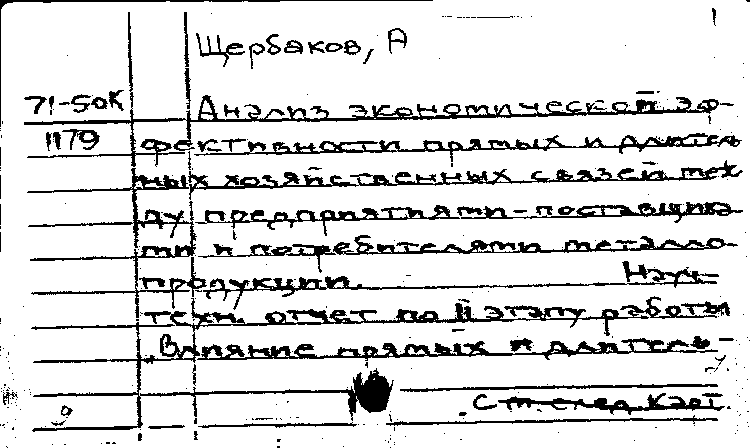 1
Щербаков, А
71-50К
1179
Анализ экономической эф-
фективности прямых и длитель
ных хозяйственных связей меж
ду предприятиями-поставщика
ми и потребителями металло-
продукции. Науч-
техн. отчет по II этапу работы
"Влияние прямых и длитель-
См. след карт.